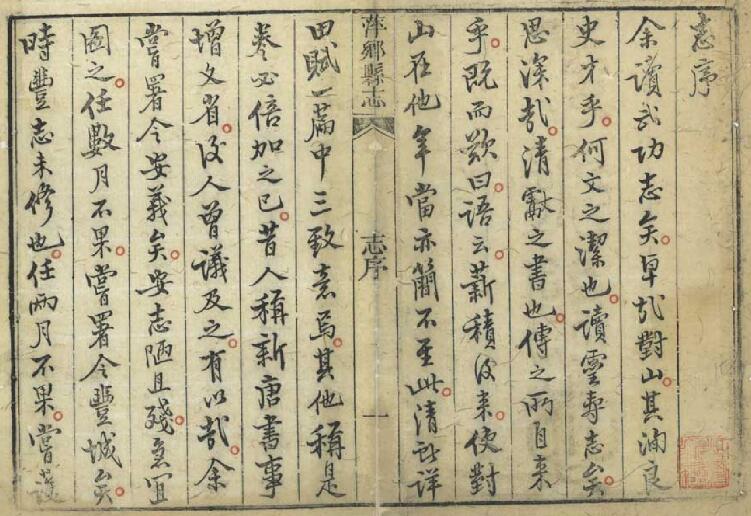 志序
余讀武功志矣卓哉對山其洵良
史才乎何文之潔也讀靈壽志矣
思深哉清獻之書也傳之所自來
乎既而歎曰語云薪積後來使對
山在他年當亦簡不至此清詳
萍鄉縣志 志序 一
田賦一篇中三致意焉其他稱是
卷必倍加之已昔人稱新唐書事
增文省後人曾議及之有以哉余
嘗署令安義矣安志陋且殘急宜
圖之任數月不果嘗署令豐城矣
時豐志未修也任兩月不果嘗護